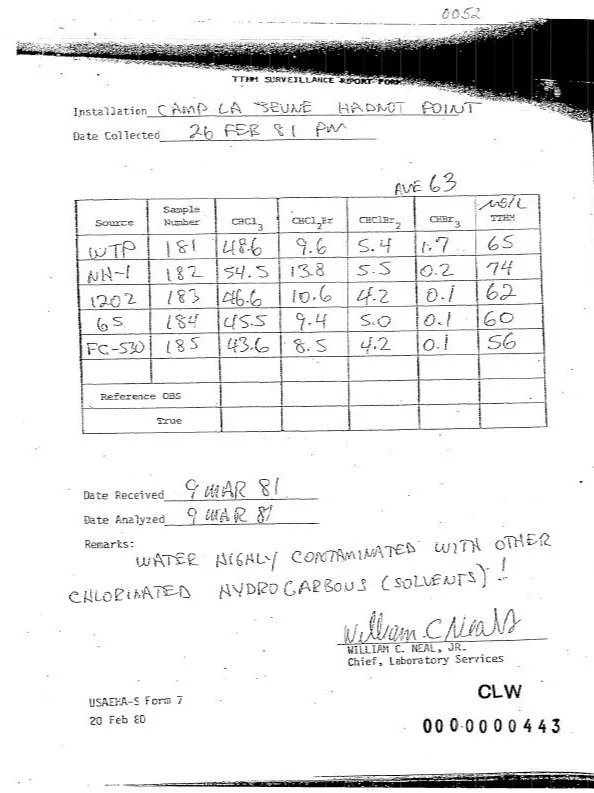 0052
TTHM SURVEILLANCE REPORT FORM
Installation CAMP LA JEUNE HADNOT POINT
Date Collected 26 FEB 81 PM
AVE 63
Source Sample Number CHCl3 CHCl2Br CHClBr2 CHBr3 UG/L TTHM
WTP 181 48.6 9.6 5.4 1.7 65
NH-1 182 54.5 13.8 5.5 0.2 74
1202 183 46.6 10.6 4.2 0.1 62
65 184 45.5 9.4 5.0 0.1 60
FC-530 185 43.6 8.5 4.2 0.1 56
Reference OBS
True
Date Received 9 MAR 81
Date Analyzed 9 MAR 81
Remarks:
WATER HIGHLY CONTAMINATED WITH OTHER
CHLORINATED HYDROCARBONS (SOLVENTS)!
William C Neal Jr
WILLIAM C. NEAL, JR.
Chief, Laboratory Services
USAEHA-S Form 7
20 Feb 80
CLW
0000000443